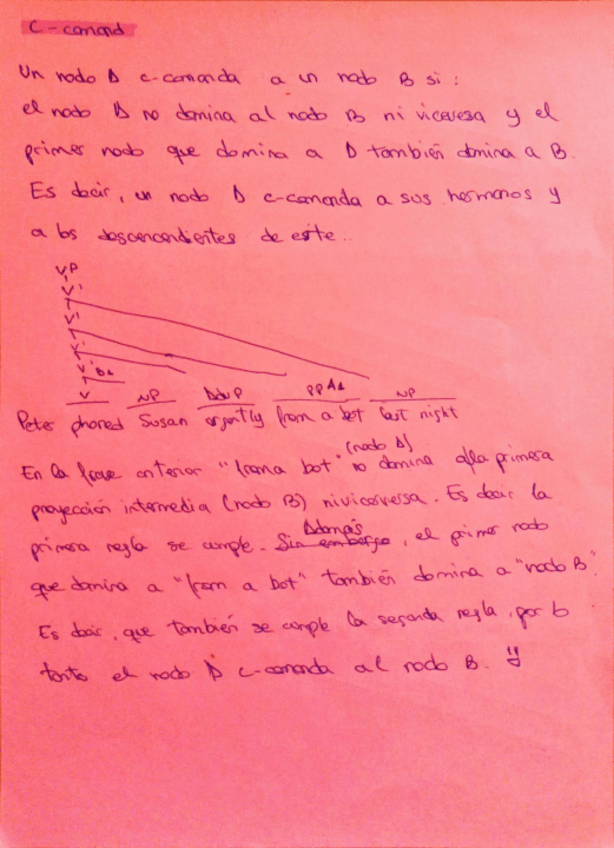 C-comand
Un nodo A c-comanda a un nodo B si:
el nodo A no domina al nodo B ni viceversa y el
primer nodo que domina a A también domina a B.
Es decir, un nodo A c-comanda a sus hermanos y
a los descendientes de este..
VP
V'
V'
V'
V' B1
V NP AdvP PP A1 NP
Peter phoned Susan urgently from a bot last night
(nodo A)
En la frase anterior "from a bot" no domina a la primera
proyección intermedia (nodo B) ni viceversa. Es decir la
Además
primera regla se cumple. Sin embargo, el primer nodo
que domina a "from a bot" también domina a "nodo B".
Es decir, que también se cumple la segunda regla, por lo
tanto el nodo A c-comanda al nodo B.